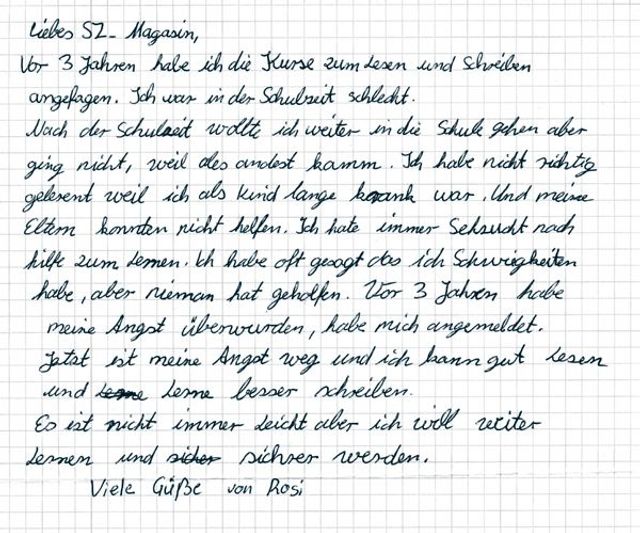 Liebes SZ-Magasin,
Vor 3 Jahren habe ich die Kurse zum Lesen und Schreiben
angefagen. Ich war in der Schulzeit schlecht.
Nach der Schulzeit wollte ich weiter in die Schule gehen aber
ging nicht, weil ales andest kamm. Ich habe nicht richtig
gelerent weil ich als Kind lange krank war. Und meine
Eltern konnten nicht helfen. Ich hate immer Sehsucht nach
hilfe zum Lernen. Ich habe oft gesagt das ich Schwirigkeiten
habe, aber nieman hat geholfen. Vor 3 Jahren habe
meine Angst überwurden, habe mich angemeldet.
Jatzt ist meine Angst weg und ich kann gut Lesen
und Lerne besser schreiben.
Es ist nicht immer Leicht aber ich will weiter
Lernen und sichrer werden.
Viele Güße von Rosi